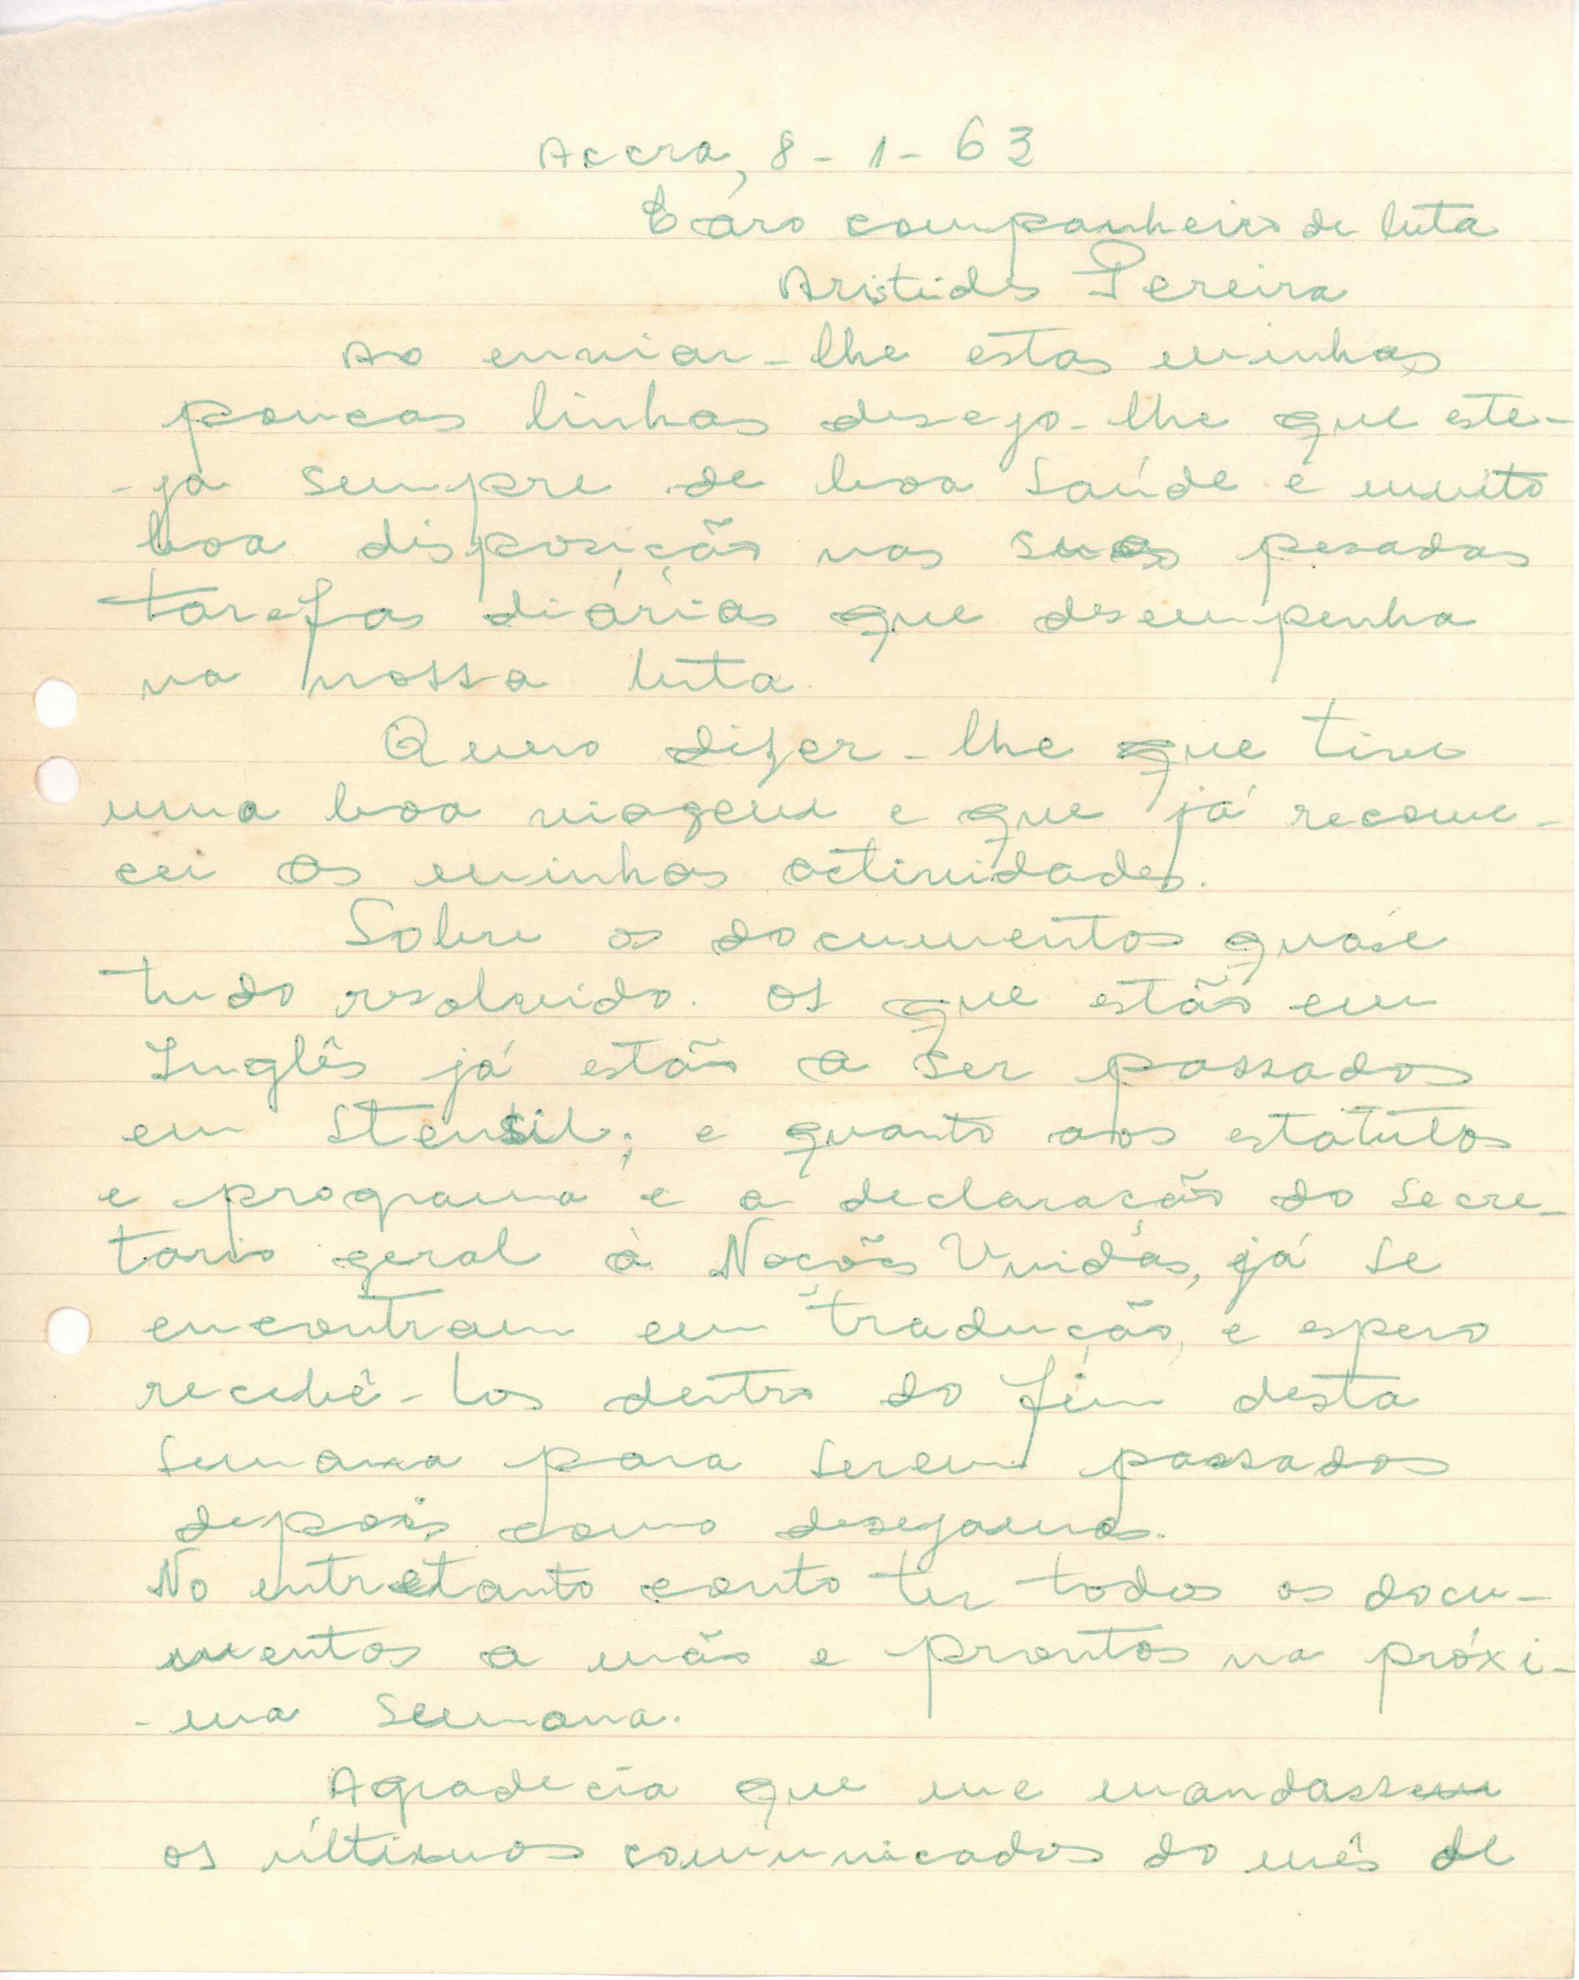 Accra, 8-1-63
Cáro companheiro de luta
Aristides Pereira
Ao enviar-lhe estas minhas
poucas linhas desejo-lhe que este-
-ja sempre de boa saúde e muito
boa disposição nas suas pesadas
tarefas diárias que desempenha
na nossa luta.
Quero dizer-lhe que tive
uma boa viagem e que já recome-
cei as minhas actividades.
Sobre os documentos quase
tudo resolvido. Os que estão em
Inglês já estão a ser passados
em Stensil; e quanto aos estatutos
e programa e a declaração do secre-
tario geral à Nações Unidas, já se
encontram em tradução, e espero
recebê-los dentro do fim desta
semana para serem passados
depois como desejamos.
No entretanto conto ter todos os docu-
mentos a mão e prontos na próxi-
-ma semana.
Agradecia que me mandassem
os últimos comunicados do mês de